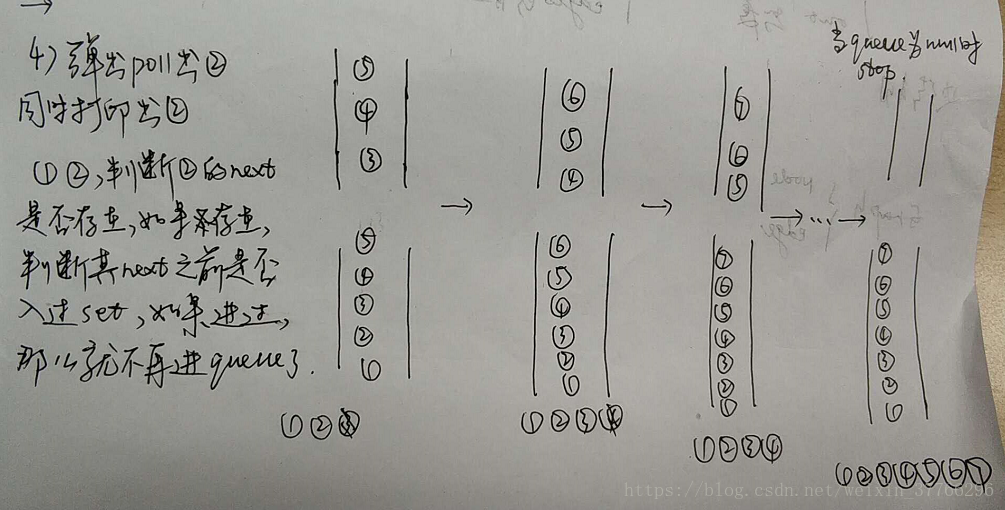 4) 弹出poll出②
同时打印出②
①②,判断②的next
是否存在,如果存在,
判断其next之前是否
入过set,如果进过,
那么就不再进queue了.
⑤
④
③
⑤
④
③
②
①
①②③
→
⑥
⑤
④
⑥
⑤
④
③
②
①
①②③④
→
⑦
⑥
⑤
⑦
⑥
⑤
④
③
②
①
①②③④
→...→
当queue为null时
stop.
⑦
⑥
⑤
④
③
②
①
①②③④⑤⑥⑦
https://blog.csdn.net/weixin_37766296